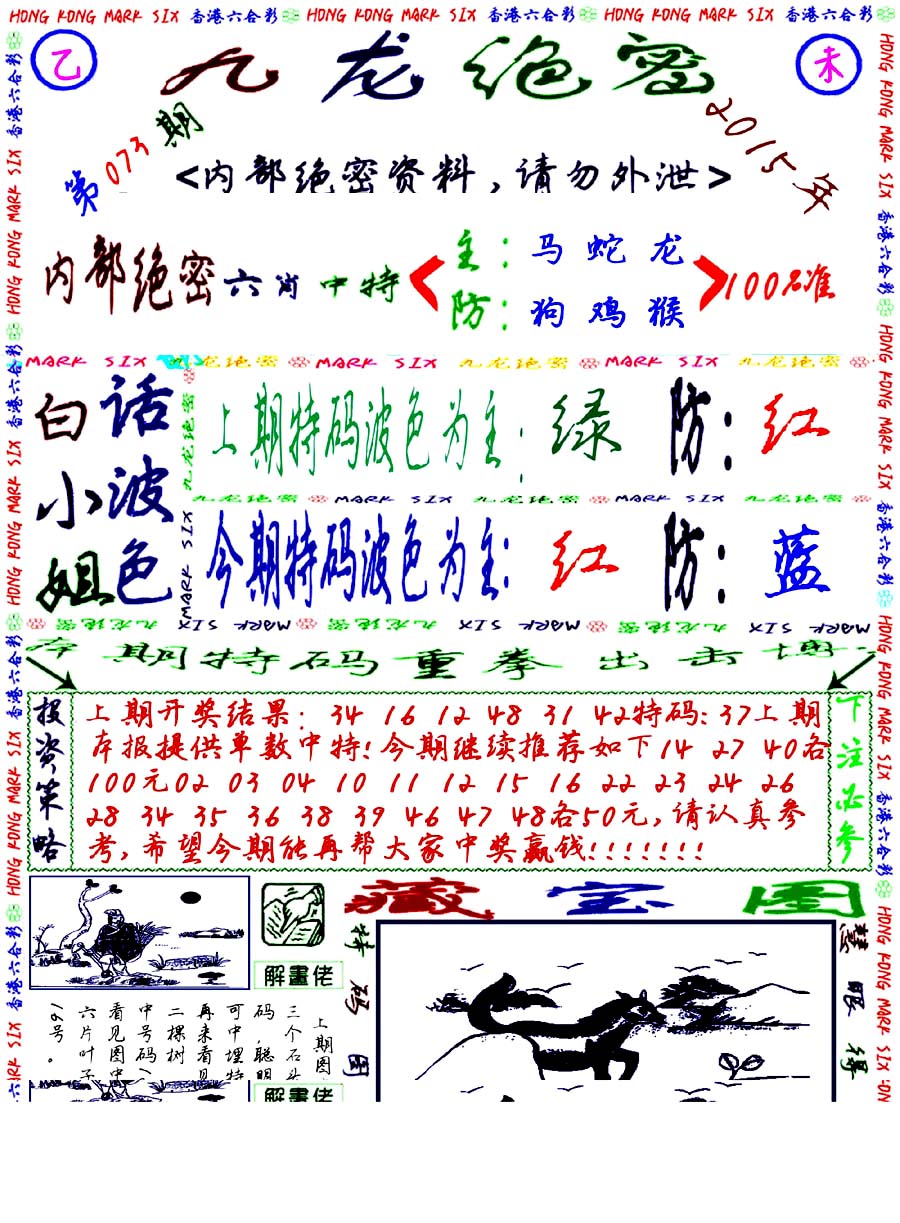 HONG KONG MARK SIX 香港六合彩 HONG KONG MARK SIX 香港六合彩 HONG KONG MARK SIX 香港六合彩
乙 九龙绝密 未
第073期 2015年
<内部绝密资料,请勿外泄>
内部绝密六肖中特
主:马 蛇 龙
防:狗 鸡 猴
100%准
MARK SIX 九龙绝密 MARK SIX 九龙绝密 MARK SIX 九龙绝密
白小姐
话波色
上期特码波色为主:绿 防:红
九龙绝密 MARK SIX 九龙绝密 MARK SIX 九龙绝密
今期特码波色为主:红 防:蓝
MARK SIX 九龙绝密 MARK SIX 九龙绝密 MARK SIX 九龙绝密
本期特码重拳出击博
投资策略
上期开奖结果: 34 16 12 48 31 42特码:37上期
本报提供单数中特!今期继续推荐如下14 27 40各
100元02 03 04 10 11 12 15 16 22 23 24 26
28 34 35 36 38 39 46 47 48各50元,请认真参
考,希望今期能再帮大家中奖赢钱!!!!!!!
下注必参
藏宝图
解畫佬
特码图
慧眼得
上期图
三个石头
码,聪明
可中埋特
再来看见
二棵树
中号码
看见图中
六片叶子
(6号。
解畫佬